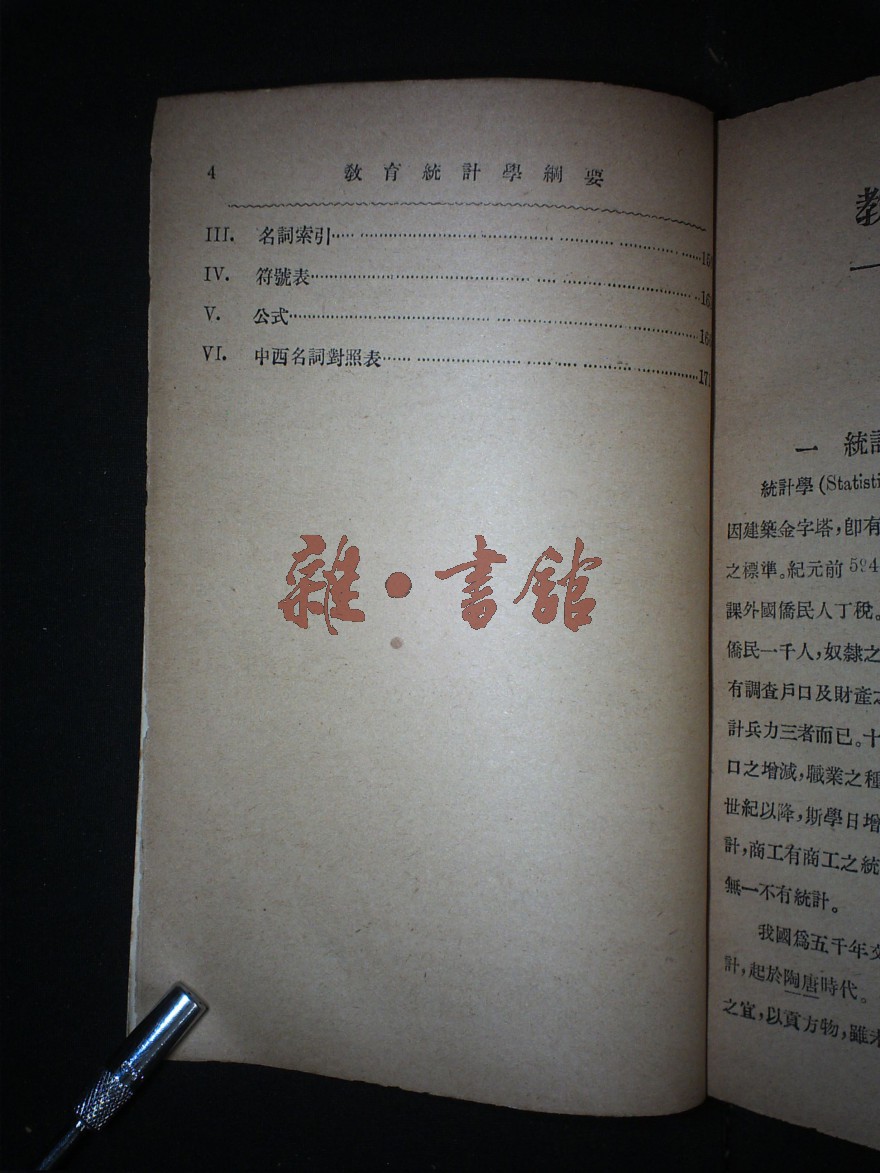 4 教育統計學綱要
III. 名詞索引
IV. 符號表
V. 公式
VI. 中西名詞對照表 171
雜·書館
一 統
統計學(Statisti
因建築金字塔,卽有
之標準。紀元前594
課外國僑民人丁稅。
僑民一千人,奴隸之
有調查戶口及財產之
計兵力三者而已。十
口之增減,職業之種
世紀以降,斯學日增
計,商工有商工之統
無一不有統計。
我國爲五千年文
計,起於陶唐時代。
之宜,以貢方物,雖未